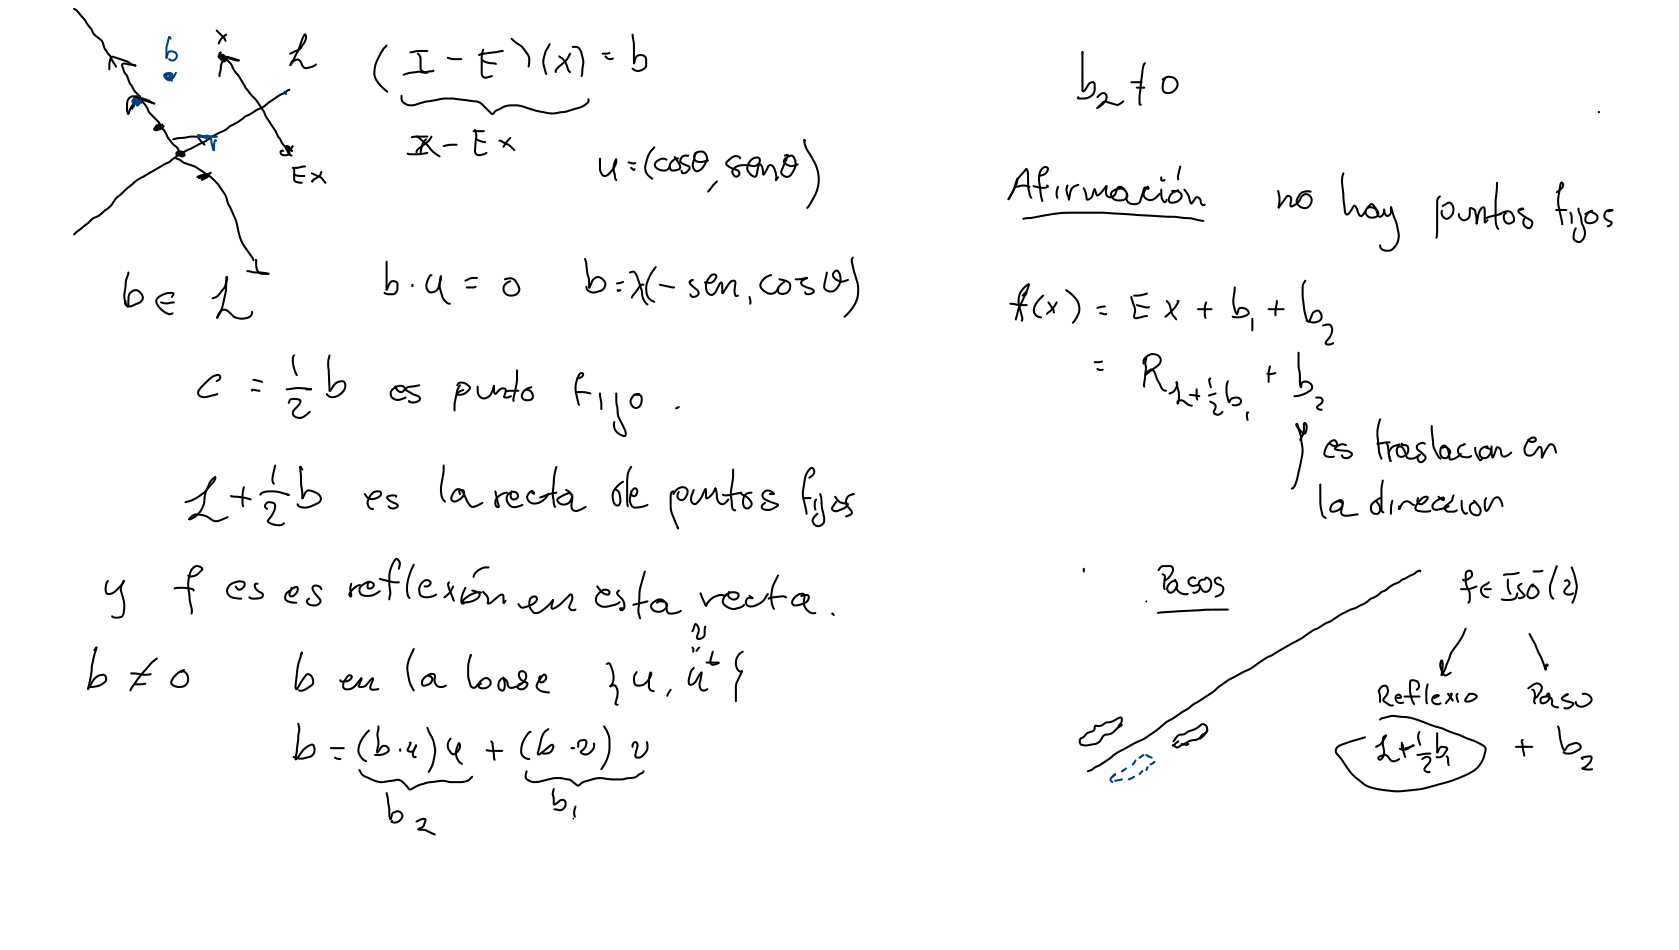 b
x
L
Ex
(I - E)(x) = b
x - Ex
u = (cosθ, senθ)
b ∈ L^⊥
b · u = 0
b = λ(- sen, cosθ)
c = 1/2 b es punto fijo.
L + 1/2 b es la recta de puntos fijos
y f es es reflexión en esta recta.
b ≠ 0
b en la base {u, u^⊥}
v
b = (b·u)u + (b·v) v
b₂
b₁
b₂ ≠ 0
Afirmación no hay puntos fijos
f(x) = Ex + b₁ + b₂
= R_{L+1/2 b₁} + b₂
es traslacion en
la direccion
Pasos
f ∈ Iso⁻(2)
Reflexio Paso
L + 1/2 b₁ + b₂